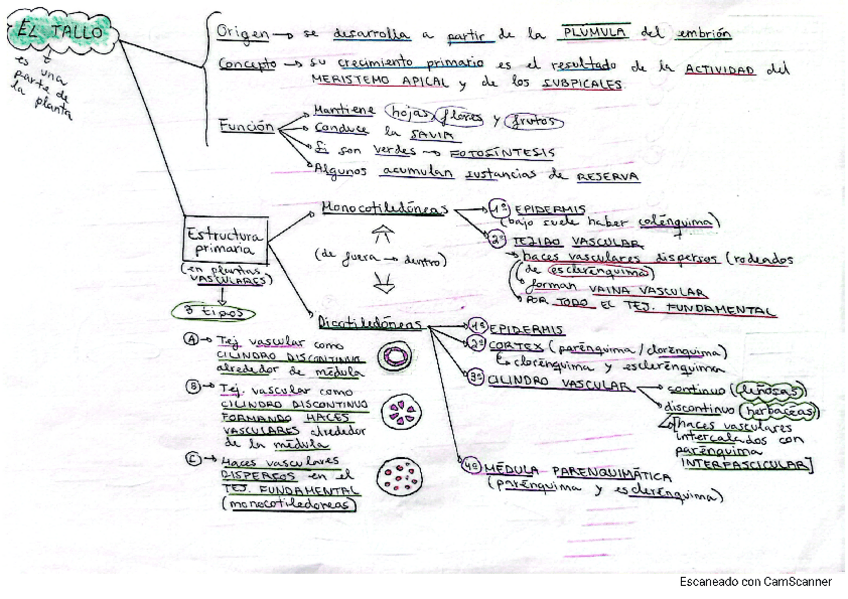 EL TALLO
es una
parte de
la planta
Origen → se desarrolla a partir de la PLÚMULA del embrión
Concepto → su crecimiento primario es el resultado de la ACTIVIDAD del
MERISTEMO APICAL y de los SUBPICALES
Función
Mantiene hojas, flores y frutos
Conduce la SAVIA
Si son verdes → FOTOSÍNTESIS
Algunos acumulan sustancias de RESERVA
Estructura
primaria
(en plantas
VASCULARES)
3 tipos
A → Tej vascular como
CILINDRO DISCONTINUO
alrededor de médula
B → Tej. vascular como
CILINDRO DISCONTINUO
FORMANDO HACES
VASCULARES alrededor
de la médula
C → Haces vasculares
DISPERSOS en el
TEJ. FUNDAMENTAL
(monocotiledóneas)
Monocotiledóneas
(de fuera → dentro)
Dicotiledóneas
1º EPIDERMIS
(bajo suele haber colénquima)
2º TEJIDO VASCULAR
→ haces vasculares dispersos (rodeados
de esclerénquima)
forman VAINA VASCULAR
POR TODO EL TEJ. FUNDAMENTAL
1º EPIDERMIS
2º CORTEX (parénquima / clorénquima)
↳ clorénquima y esclerénquima
3º CILINDRO VASCULAR
→ continuo (leñosas)
→ discontinuo (herbáceas)
[haces vasculares
intercalados con
parénquima
INTERFASCICULAR]
4º MÉDULA PARENQUIMÁTICA
(parénquima y esclerénquima)
Escaneado con CamScanner